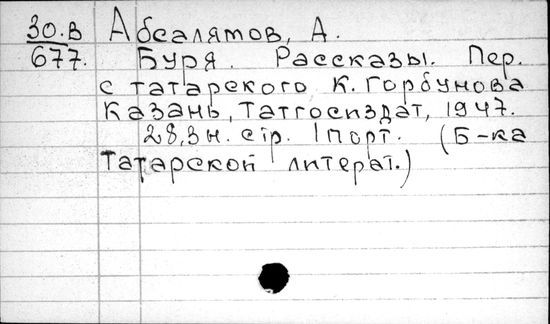 30.В Абсалямов, А.
677. Буря. Рассказы. Пер.
с татарского К. Горбунова
Казань, Татгосиздат, 1947.
28,3н. стр. 1 порт. (Б-ка
татарской литерат.)